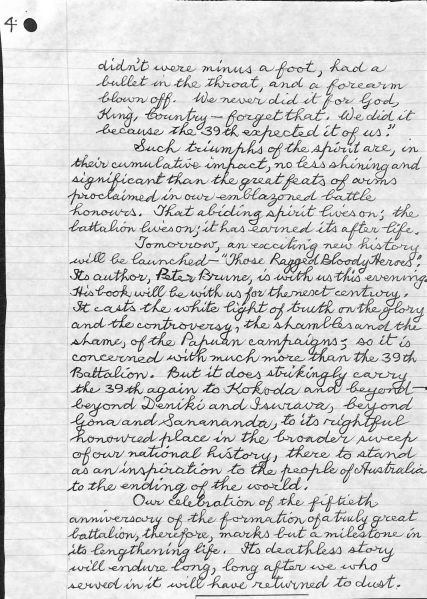 4.
didn't were minus a foot, had a
bullet in the throat, and a forearm
blown off. We never did it for God,
King, Country — forget that. We did it
because the 39th expected it of us."
Such triumphs of the spirit are, in
their cumulative impact, no less shining and
significant than the great feats of arms
proclaimed in our emblazoned battle
honours. That abiding spirit lives on; the
battalion lives on; it has earned its after life.
Tomorrow, an exciting new history
will be launched — "Those Ragged Bloody Heroes".
Its author, Peter Brune, is with us this evening.
His book will be with us for the next century.
It casts the white light of truth on the glory
and the controversy, the shambles and the
shame, of the Papuan campaigns; so it is
concerned with much more than the 39th
Battalion. But it does strikingly carry
the 39th again to Kokoda and beyond —
beyond Deniki and Isurava, beyond
Gona and Sanananda, to its rightful
honoured place in the broader sweep
of our national history, there to stand
as an inspiration to the people of Australia
to the ending of the world.
Our celebration of the fiftieth
anniversary of the formation of a truly great
battalion, therefore, marks but a milestone in
its lengthening life. Its deathless story
will endure long, long after we who
served in it will have returned to dust.